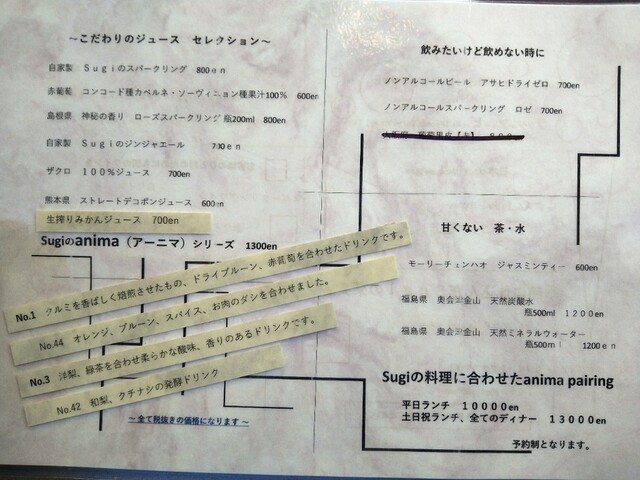 ～こだわりのジュース　セレクション～
自家製　Sugiのスパークリング　800en
赤葡萄　コンコード種カベルネ・ソーヴィニヨン種果汁100％　600en
島根県　神秘の香り　ローズスパークリング 瓶200ml　800en
自家製　Sugiのジンジャエール　700en
ザクロ　100％ジュース　700en
熊本県　ストレートデコポンジュース　600en
生搾りみかんジュース　700en
Sugiのanima（アーニマ）シリーズ　1300en
No.1　クルミを香ばしく焙煎させたもの、ドライプルーン、赤葡萄を合わせたドリンクです。
No.44　オレンジ、プルーン、スパイス、お肉のダシを合わせました。
No.3　洋梨、緑茶を合わせ柔らかな酸味、香りのあるドリンクです。
No.42　和梨、クチナシの発酵ドリンク
～全て税抜きの価格になります～
飲みたいけど飲めない時に
ノンアルコールビール　アサヒドライゼロ　700en
ノンアルコールスパークリング　ロゼ　700en
甘くない　茶・水
モーリーチュンハオ　ジャスミンティー　600en
福島県　奥会津金山　天然炭酸水
瓶500ml　1200en
福島県　奥会津金山　天然ミネラルウォーター
瓶500ml　1200en
Sugiの料理に合わせたanima pairing
平日ランチ　10000en
土日祝ランチ、全てのディナー　13000en
予約制となります。